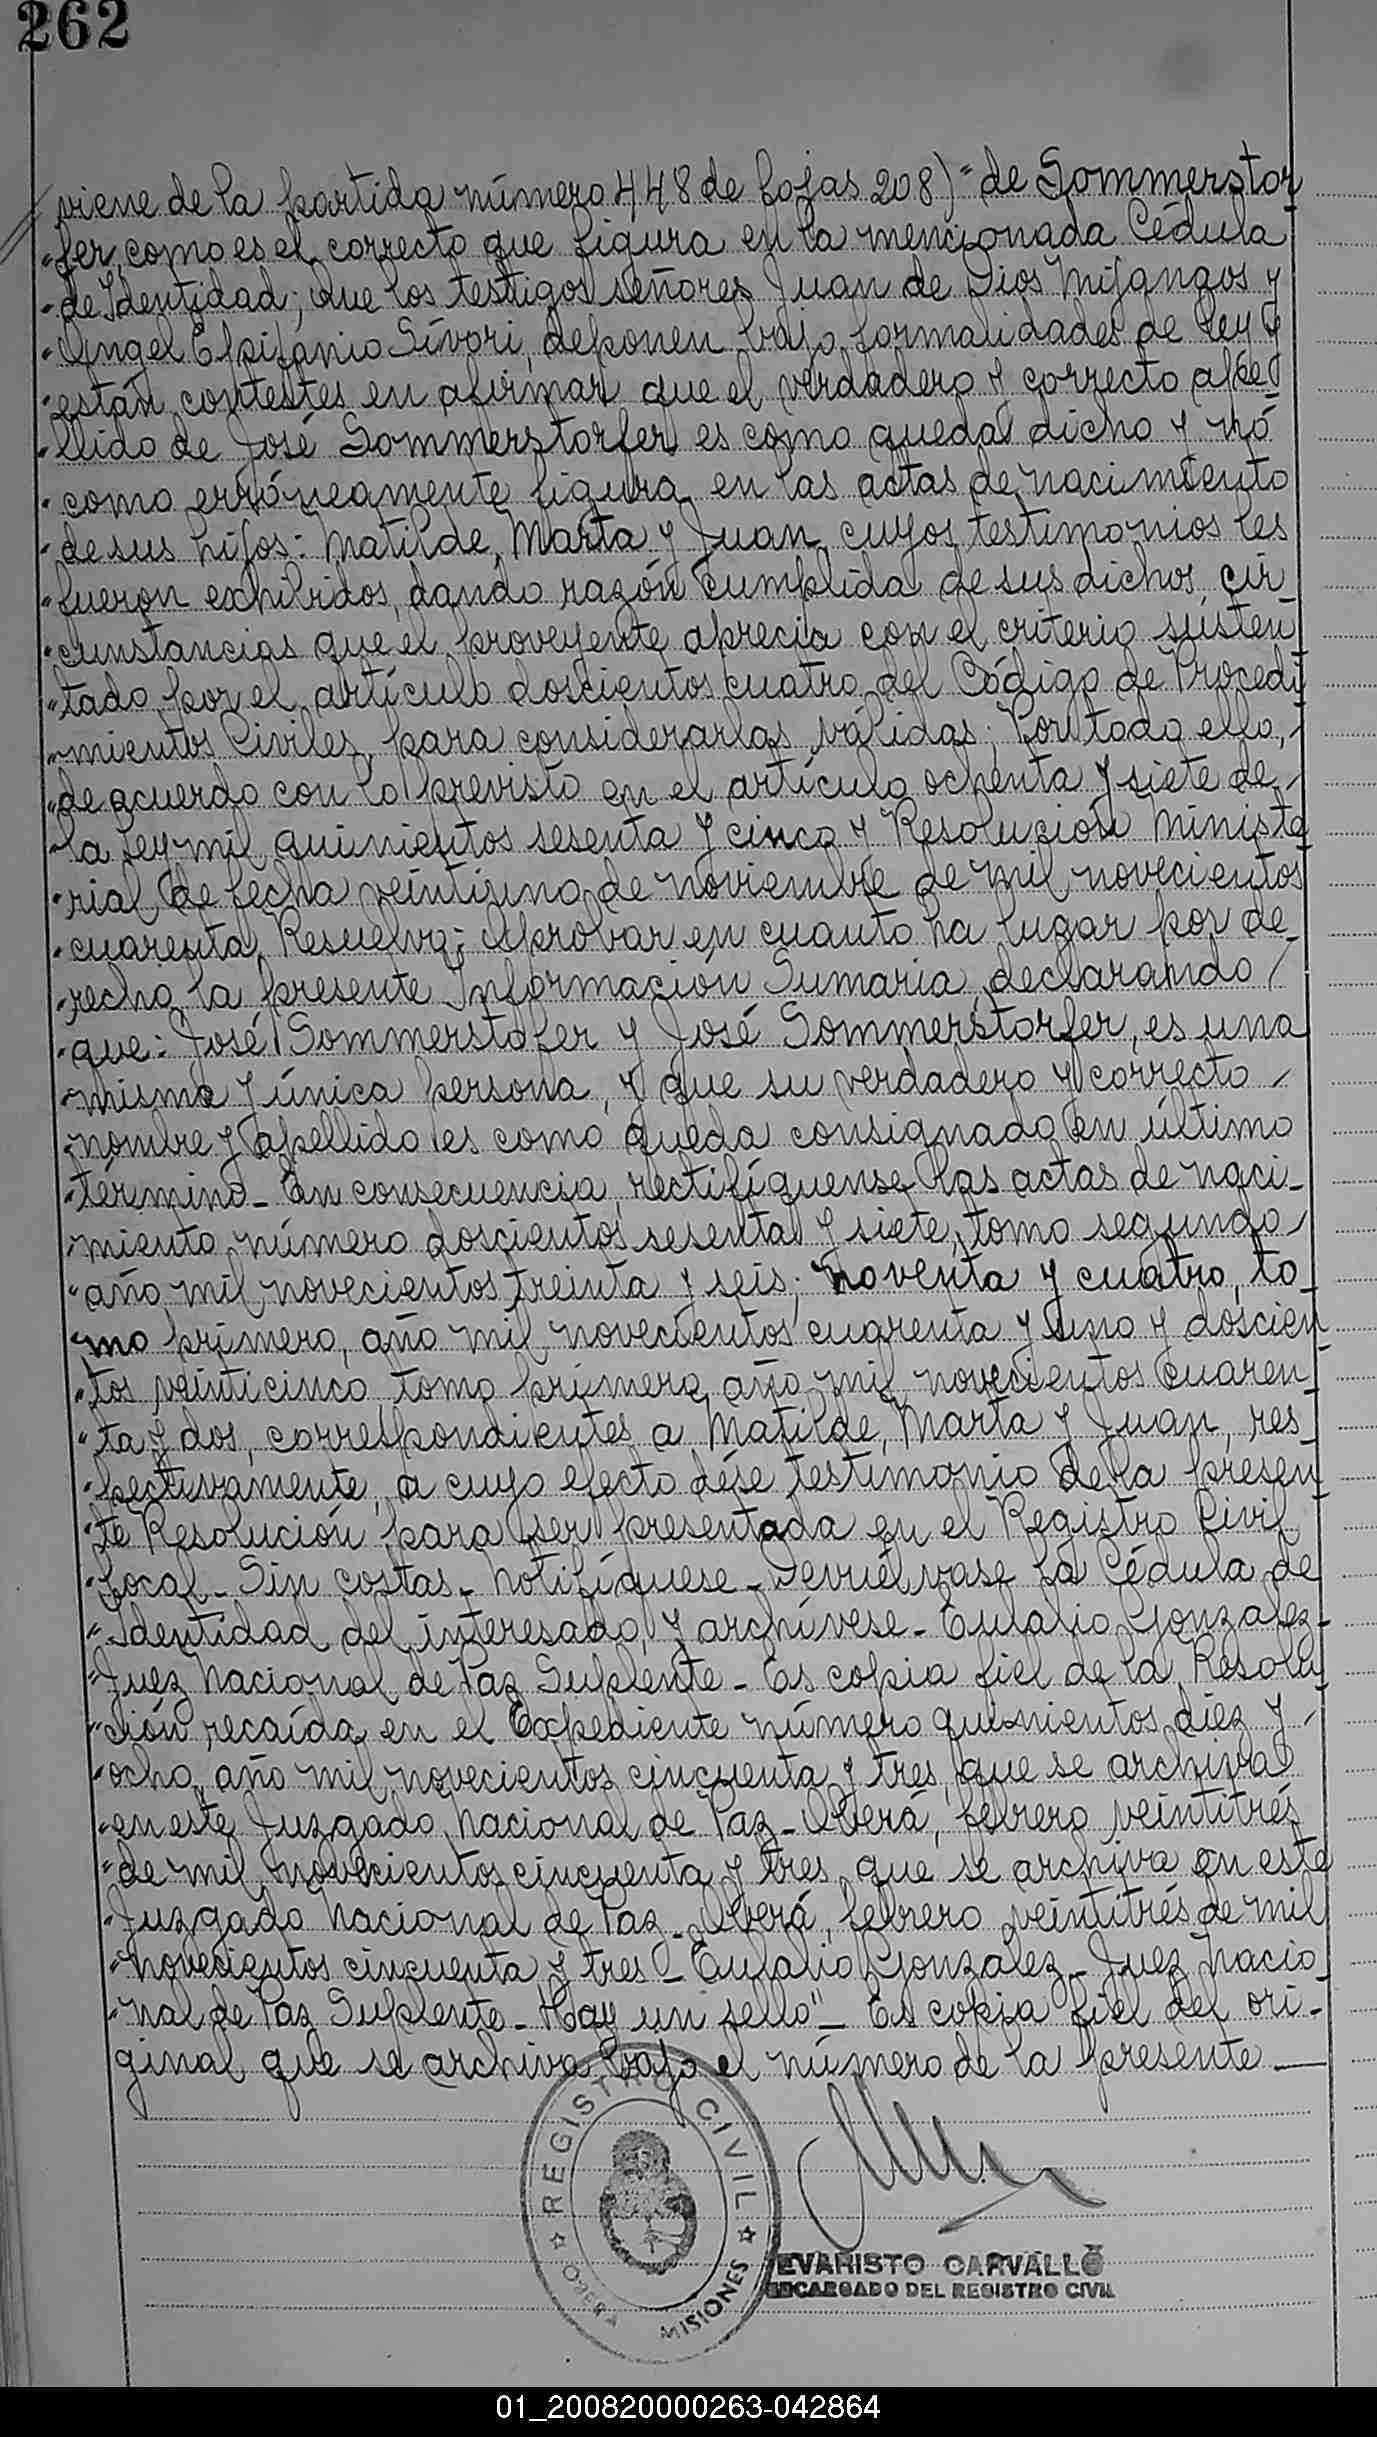 262
viene de la partida número 448 de fojas 208) "de Sommerstor
"fer, como es el correcto que figura en la mencionada Cédula
"de Identidad; Que los testigos señores Juan de Dios Mijangos y
"Angel Epifanio Sívori, deponen bajo formalidades de ley y
"están contestes en afirmar que el verdadero y correcto ape-
"llido de José Sommerstorfer es como queda dicho y nó
"como erróneamente figura en las actas de nacimiento
"de sus hijos: Matilde, Marta y Juan, cuyos testimonios les
"fueron exhibidos, dando razón cumplida de sus dichos, cir
"cunstancias que el proveyente aprecia con el criterio susten
"tado por el artículo doscientos cuatro del Código de Procedi
"mientos Civiles, para considerarlas válidas; Por todo ello,
"de acuerdo con lo previsto en el artículo ochenta y siete de
"la ley mil quinientos sesenta y cinco y Resolución Ministe
"rial de fecha veintiuno de noviembre de mil novecientos
"cuarenta, Resuelvo: Aprobar en cuanto ha lugar por de-
"recho la presente Información Sumaria, declarando
"que: José Sommerstofer y José Sommerstorfer, es una
"misma y única persona, y que su verdadero y correcto
"nombre y apellido es como queda consignado en último
"término_ En consecuencia, rectifíquense las actas de naci_
"miento número doscientos sesenta y siete, tomo segundo
"año mil novecientos treinta y seis; noventa y cuatro, to
"mo primero, año mil novecientos cuarenta y uno y doscien
"tos veinticinco, tomo primero, año mil novecientos cuaren
"ta y dos, correspondientes a Matilde, Marta y Juan, res_
"pectivamente, a cuyo efecto dése testimonio de la presen
"te Resolución para ser presentada en el Registro Civil
"local_ Sin costas_ Notifíquese_ Devuélvase la Cédula de
"Identidad del interesado, y archívese_ Eulalio Gonzalez_
"Juez Nacional de Paz Suplente_ Es copia fiel de la Resolu
"ción recaída en el Expediente número quinientos diez y
"ocho, año mil novecientos cincuenta y tres, que se archiva
"en este Juzgado Nacional de Paz_ Oberá, febrero veintitrés
"de mil novecientos cincuenta y tres, que se archiva en este
"Juzgado Nacional de Paz_ Oberá, febrero veintitrés de mil
"novecientos cincuenta y tres_ Eulalio Gonzalez_ Juez Nacio
"nal de Paz Suplente_ Hay un sello"_ Es copia fiel del ori-
ginal que se archiva bajo el número de la presente_
REGISTRO CIVIL
OBERA MISIONES
EVARISTO CARVALLO
ENCARGADO DEL REGISTRO CIVIL
01_200820000263-042864